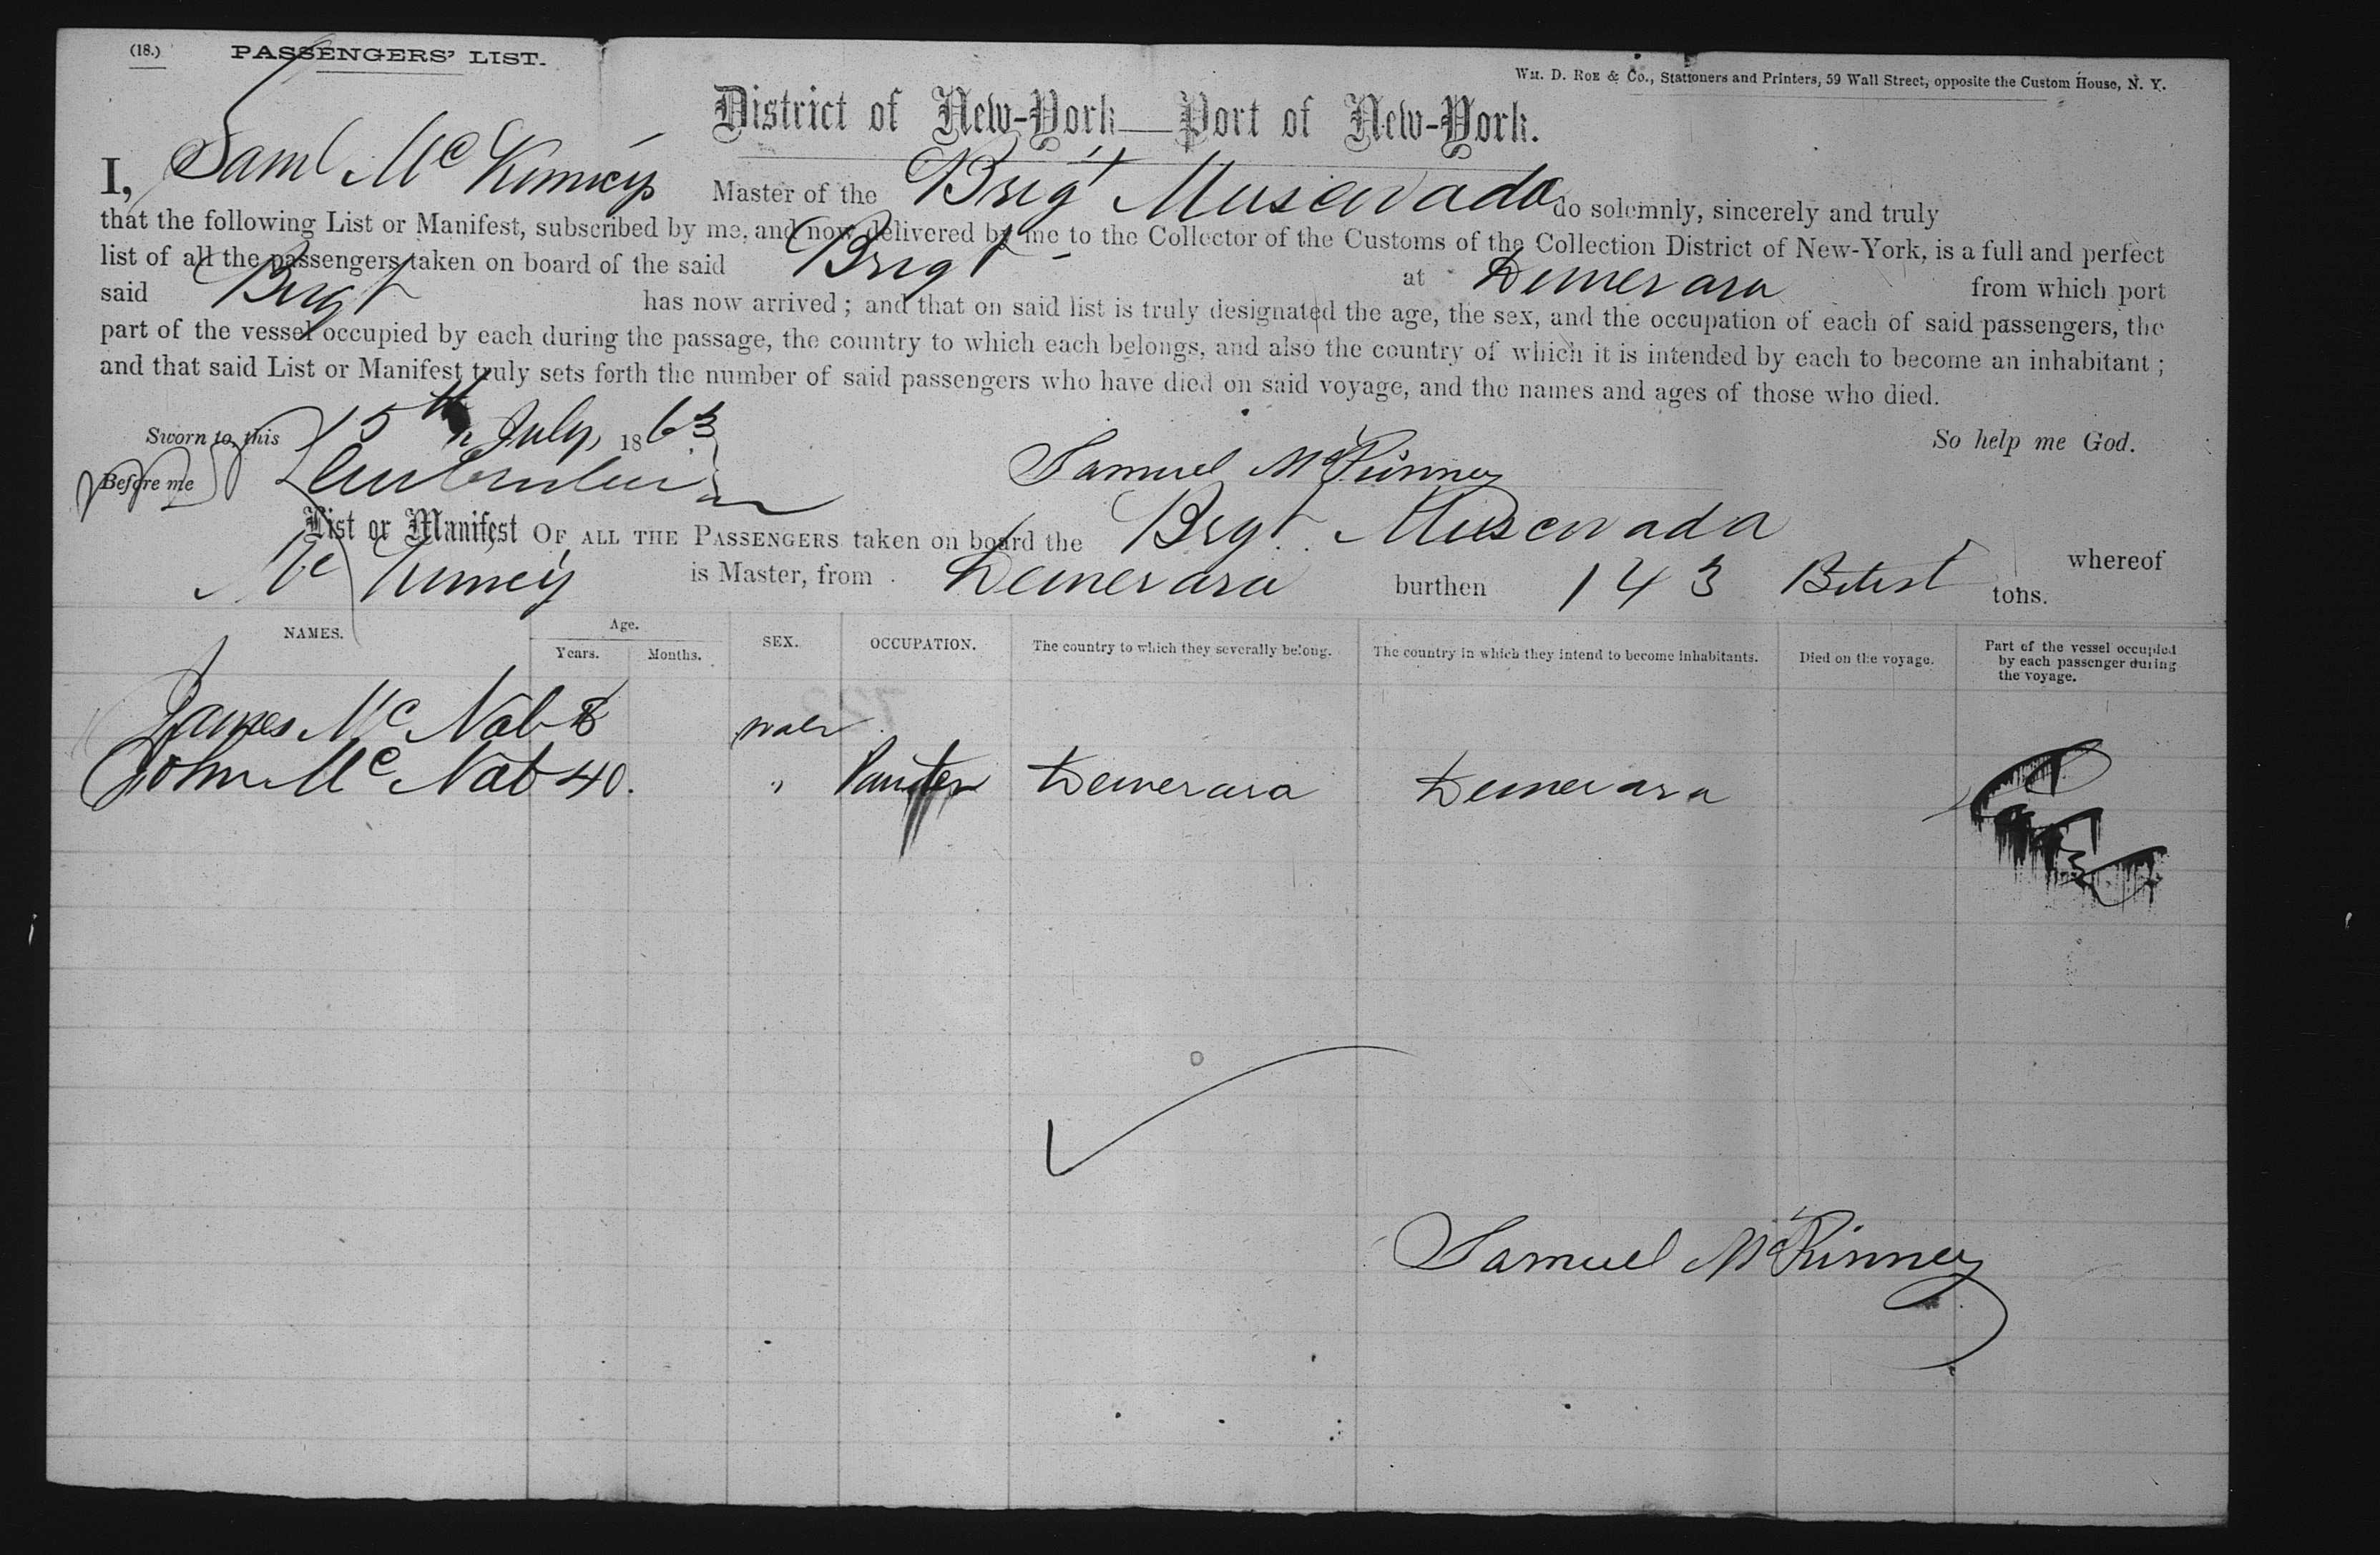 (18.) PASSENGERS' LIST.
Wm. D. Roe & Co., Stationers and Printers, 59 Wall Street, opposite the Custom House, N. Y.
District of New-York—Port of New-York.
I, Saml McKinney Master of the Brigt Muscovado do solemnly, sincerely and truly
that the following List or Manifest, subscribed by me, and now delivered by me to the Collector of the Customs of the Collection District of New-York, is a full and perfect
list of all the passengers taken on board of the said Brigt at Demerara from which port
said Brigt has now arrived; and that on said list is truly designated the age, the sex, and the occupation of each of said passengers, the
part of the vessel occupied by each during the passage, the country to which each belongs, and also the country of which it is intended by each to become an inhabitant;
and that said List or Manifest truly sets forth the number of said passengers who have died on said voyage, and the names and ages of those who died.
Sworn to, this 15th July, 1863 So help me God.
Before me Samuel McKinney
List or Manifest OF ALL THE PASSENGERS taken on board the Brgt. Muscovada whereof
McKinney is Master, from Demerara burthen 143 tons.
NAMES. Age. Years. Months. SEX. OCCUPATION. The country to which they severally belong. The country in which they intend to become inhabitants. Died on the voyage. Part of the vessel occupied by each passenger during the voyage.
James McNab 8 male
John McNab 40. " Demerara Demerara
Samuel McKinney